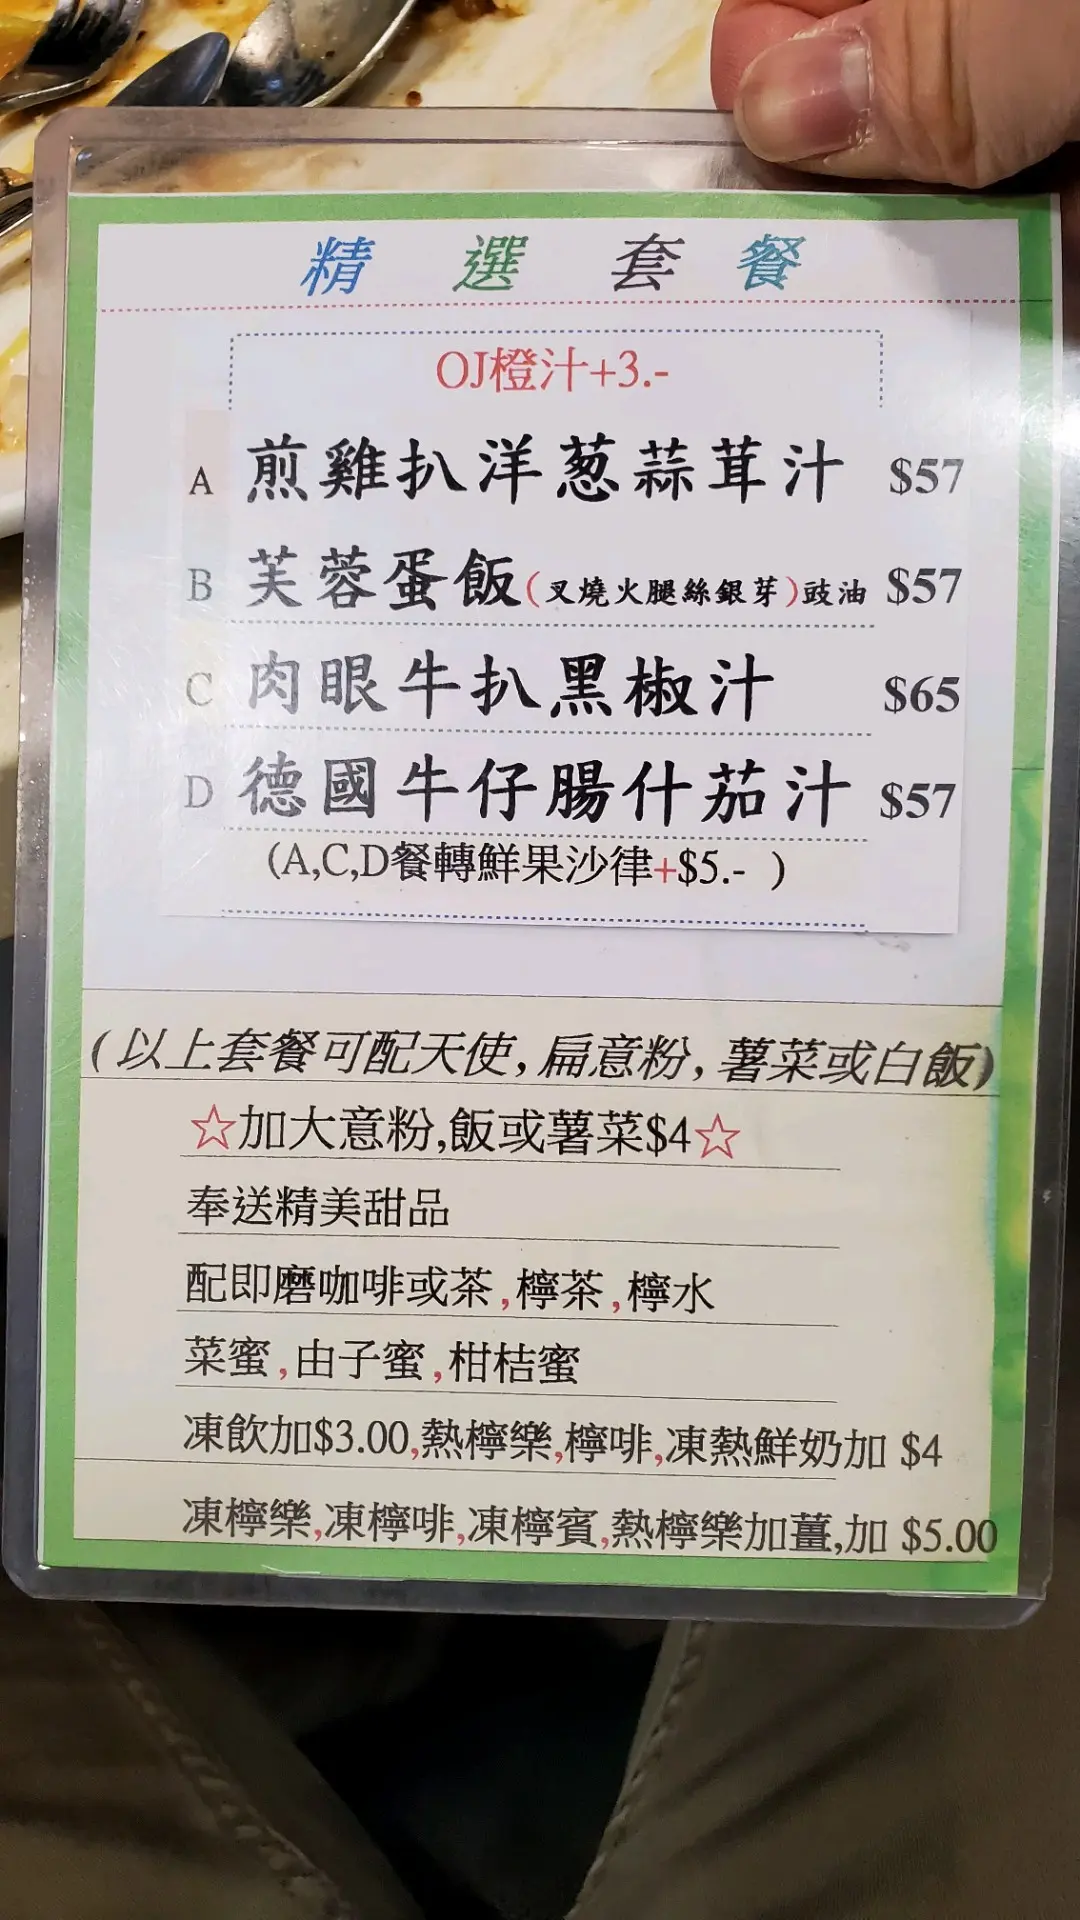 精選套餐
OJ橙汁+3.-
A 煎雞扒洋葱蒜茸汁 $57
B 芙蓉蛋飯(叉燒火腿絲銀芽)豉油 $57
C 肉眼牛扒黑椒汁 $65
D 德國牛仔腸什茄汁 $57
(A,C,D餐轉鮮果沙律+$5.- )
(以上套餐可配天使,扁意粉,薯菜或白飯)
☆加大意粉,飯或薯菜$4☆
奉送精美甜品
配即磨咖啡或茶,檸茶,檸水
菜蜜,由子蜜,柑桔蜜
凍飲加$3.00,熱檸樂,檸啡,凍熱鮮奶加 $4
凍檸樂,凍檸啡,凍檸賓,熱檸樂加薑,加 $5.00